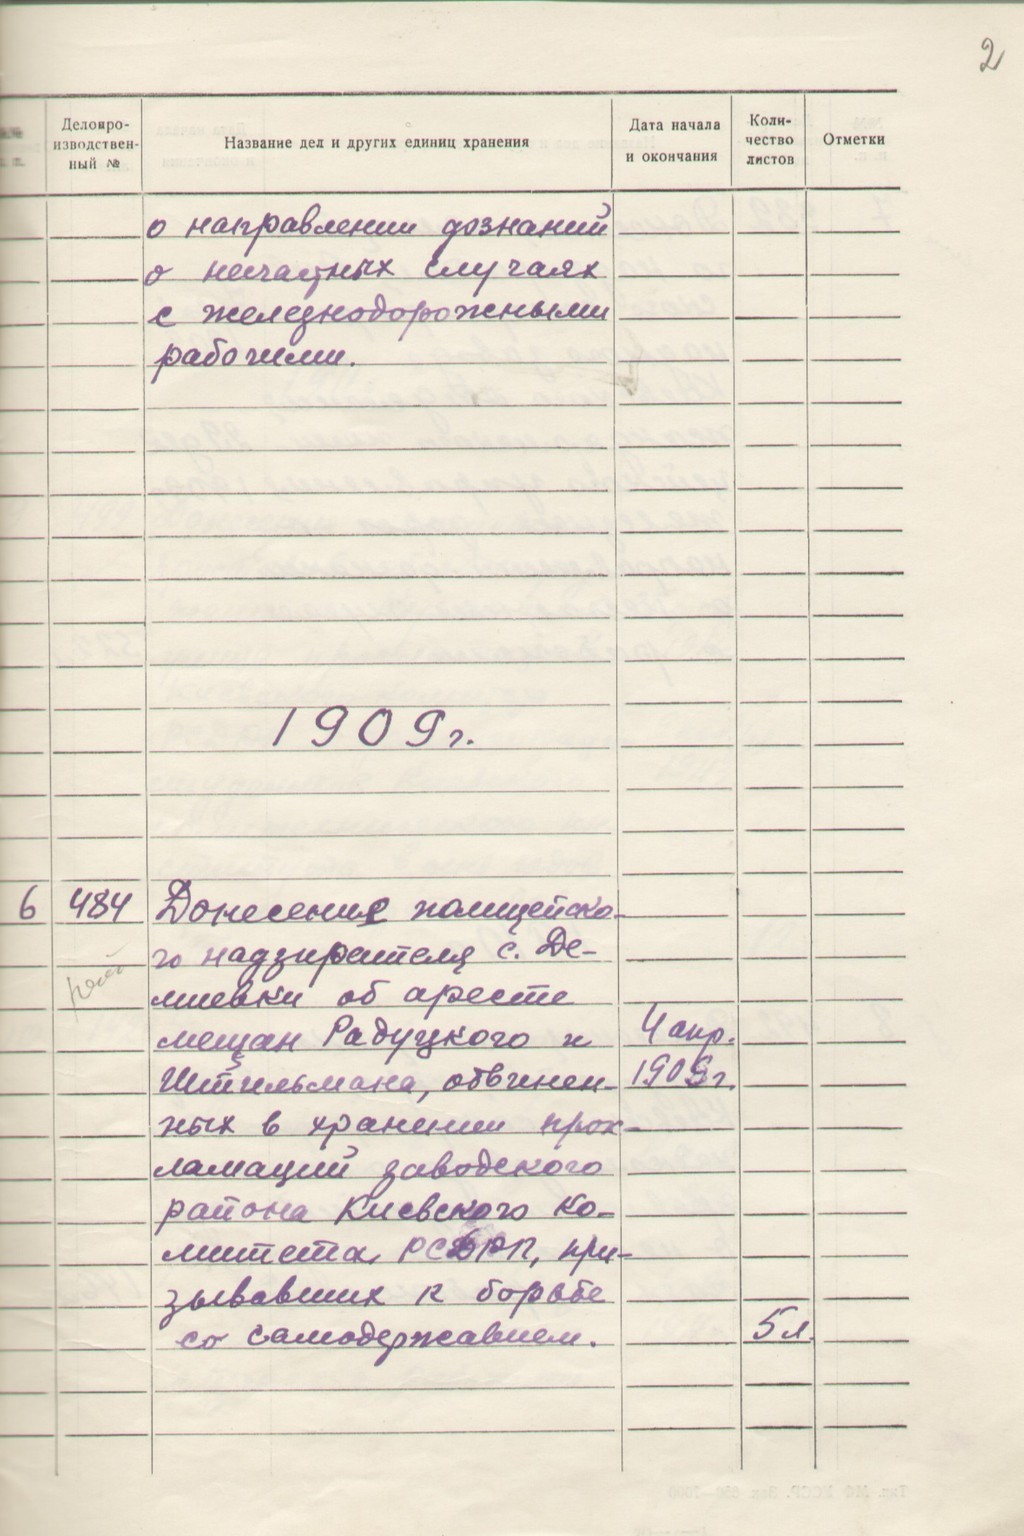 2
Делопро-
изводствен-
ный №
Название дел и других единиц хранения
Дата начала
и окончания
Коли-
чество
листов
Отметки
о направлении дознаний
о несчастных случаях
с железнодорожными
рабочими.
1909 г.
6 484 Донесения полицейско-
го надзирателя с. Де-
миевки об аресте
мещан Радуцкого и 4 апр.
Штильмана, обвинен- 1909 г.
ных в хранении прок-
ламаций заводского
района Киевского Ко-
митета РСДРП, при-
зывавших к борьбе
со самодержавием. 5 л.